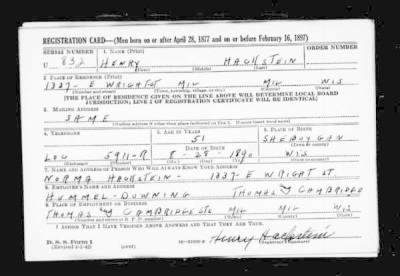 REGISTRATION CARD—(Men born on or after April 28, 1877 and on or before February 16, 1897)
SERIAL NUMBER 1. NAME (Print) ORDER NUMBER
U 832 HENRY HACHSTEIN
(First) (Middle) (Last)
2. PLACE OF RESIDENCE (Print)
1337- E WRIGHT ST MIL MIL WIS
(Number and street) (Town, township, village, or city) (County) (State)
[THE PLACE OF RESIDENCE GIVEN ON THE LINE ABOVE WILL DETERMINE LOCAL BOARD
JURISDICTION; LINE 2 OF REGISTRATION CERTIFICATE WILL BE IDENTICAL]
3. MAILING ADDRESS
SAME
[Mailing address if other than place indicated on line 2. If same insert word same]
4. TELEPHONE 5. AGE IN YEARS 6. PLACE OF BIRTH
51 SHEBOYGAN
DATE OF BIRTH (Town or county)
LOC 5911-R 8-28-1890 WIS
(Exchange) (Number) (Mo.) (Day) (Yr.) (State or country)
7. NAME AND ADDRESS OF PERSON WHO WILL ALWAYS KNOW YOUR ADDRESS
NORMA HACHSTEIN- 1337-E WRIGHT ST.
8. EMPLOYER'S NAME AND ADDRESS
HUMMEL-DOWNING THOMAS & CAMBRIDGE
9. PLACE OF EMPLOYMENT OR BUSINESS
THOMAS & CAMBRIDGE STS MIL MIL WIS
(Number and street or R. F. D. number) (Town) (County) (State)
I AFFIRM THAT I HAVE VERIFIED ABOVE ANSWERS AND THAT THEY ARE TRUE.
D. S. S. Form 1
(Revised 4-1-42) (over) Henry Hachstein
(Registrant's signature)